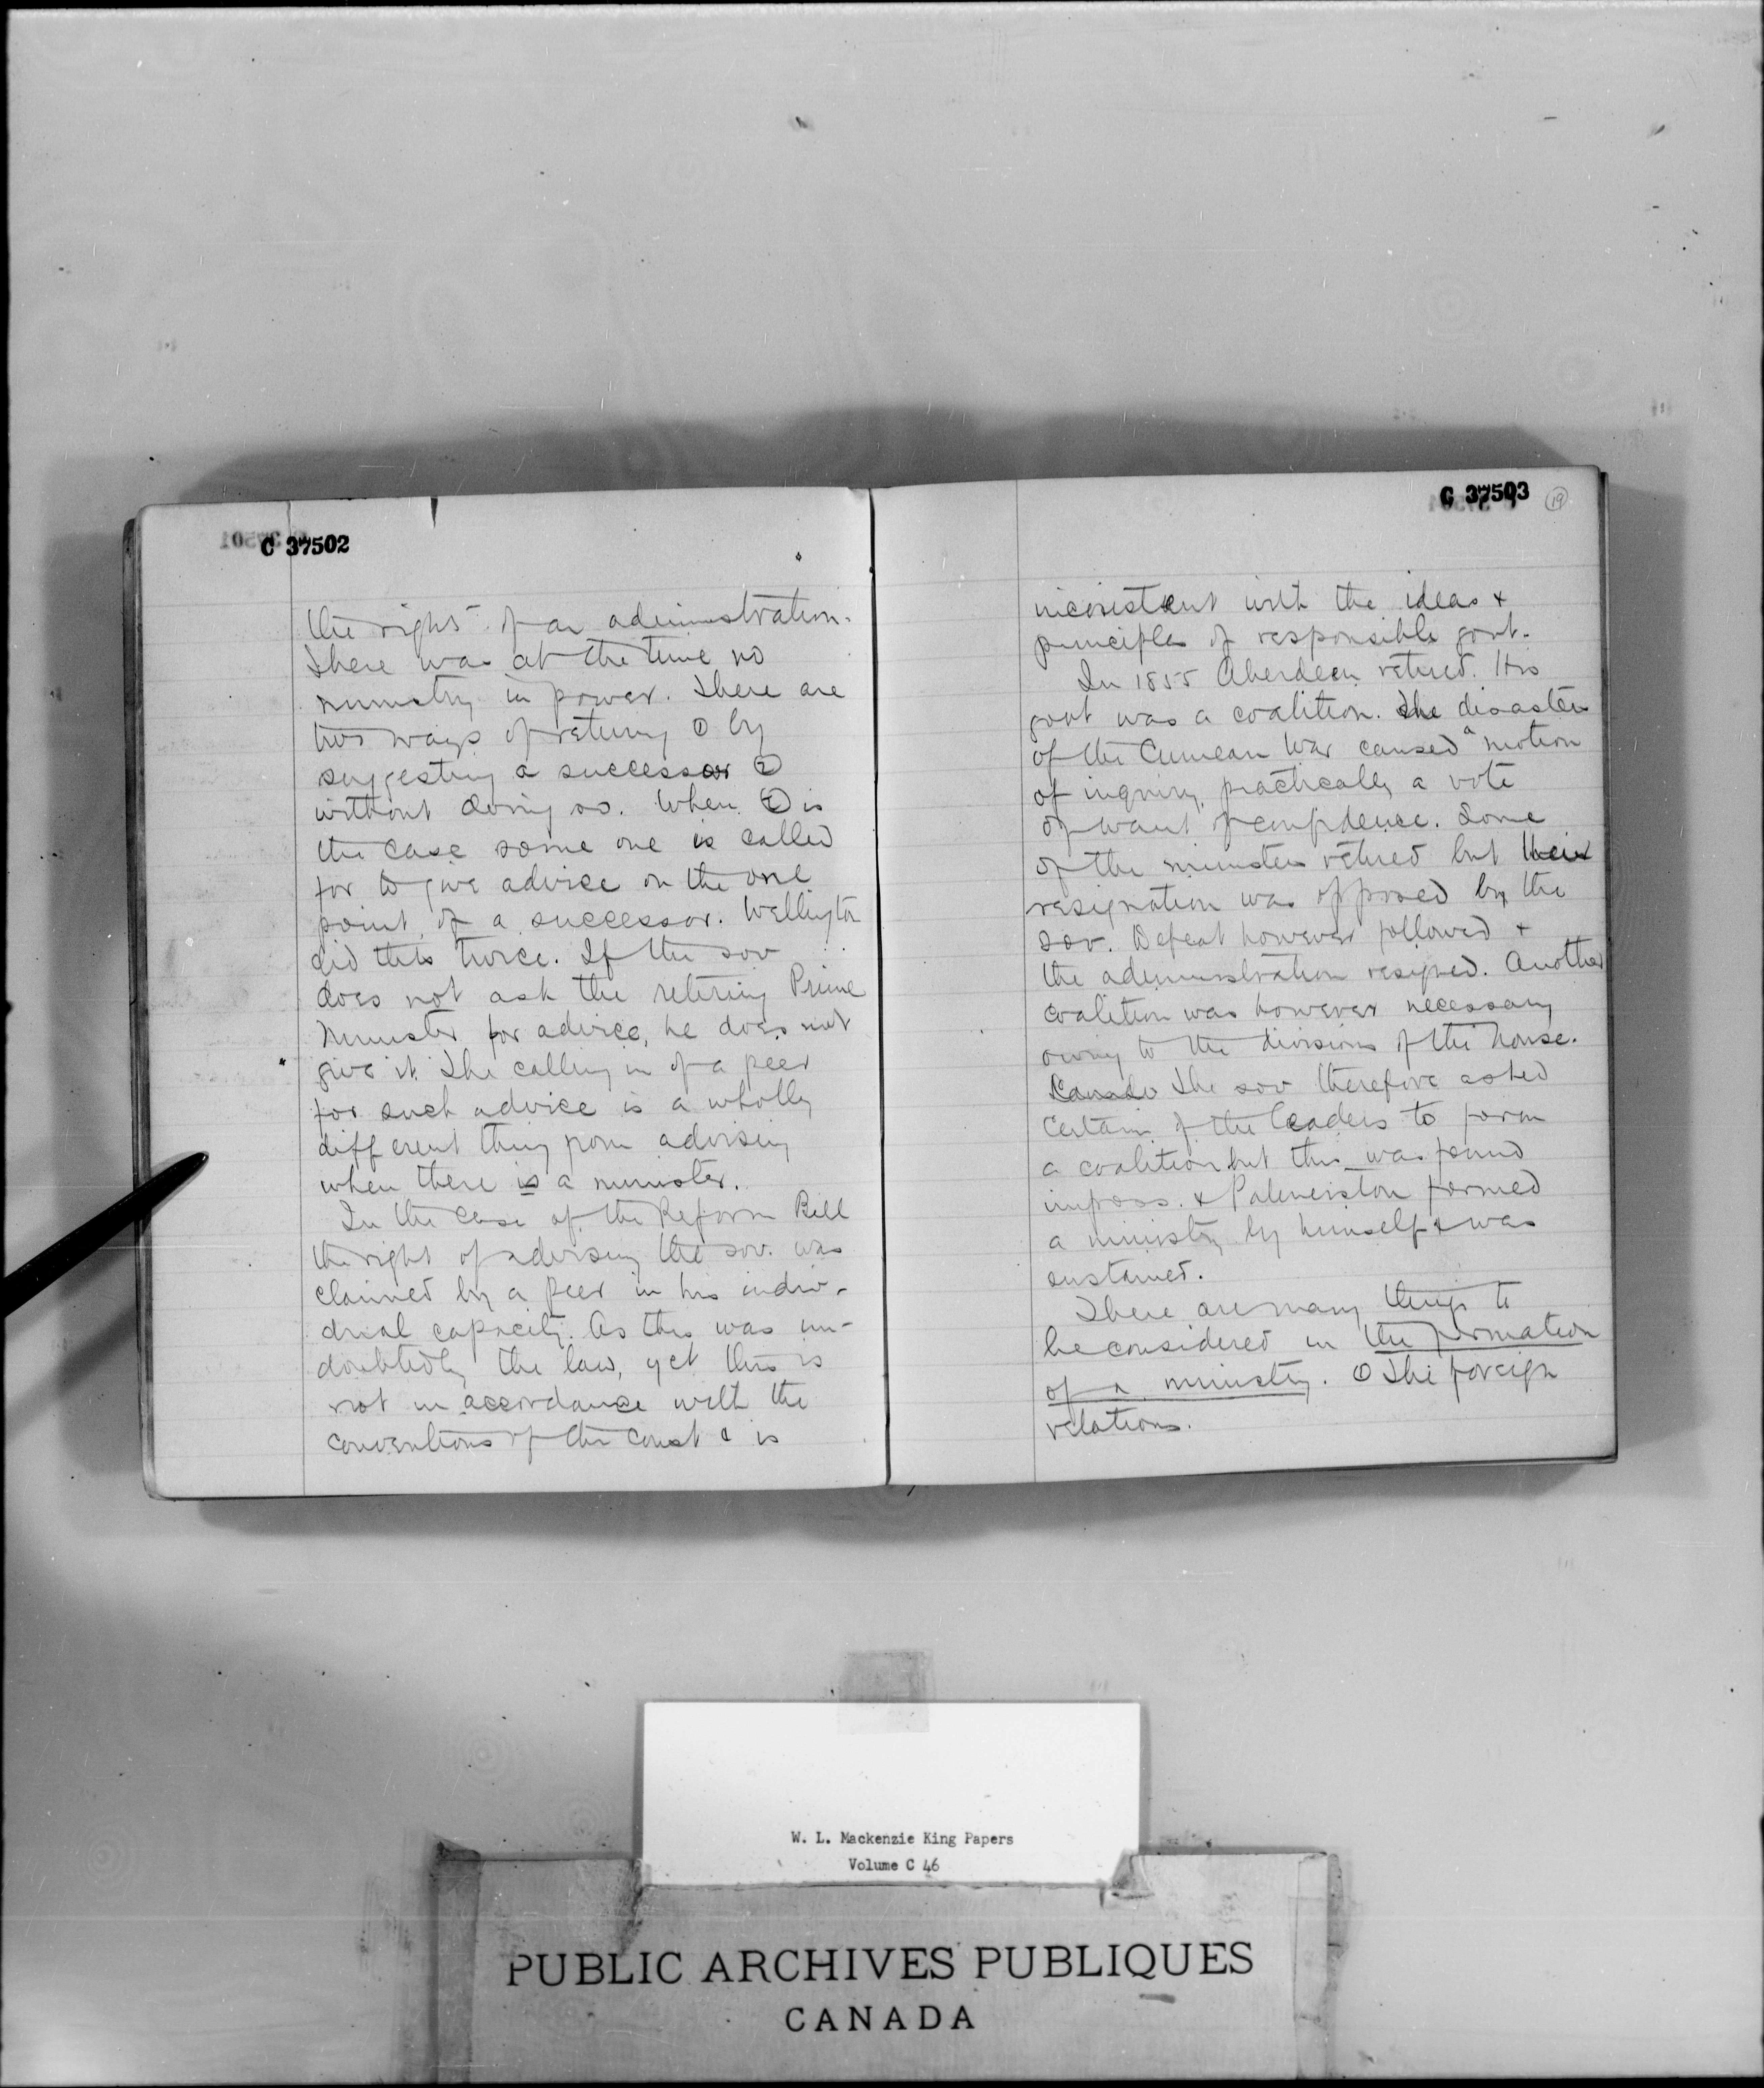 C 37502
the rights of an administration.
There was at the time no
ministry in power. There are
two ways of retiring ① by
suggesting a successor ②
without doing so. When ② is
the case some one is called
for to give advice on the one
point of a successor. Wellington
did this twice. If the sov
does not ask the retiring Prime
Minister for advice, he does not
give it. The calling in of a peer
for such advice is a wholly
different thing from advising
when there is a minister.
In the case of the Reform Bill
the right of advising the sov. was
claimed by a peer in his indiv-
dual capacity. As this was un-
doubtedly the law, yet this is
not in accordance with the
conventions of the const & is
C 37503
19
inconsistent with the ideas &
principles of responsible govt.
In 1855 Aberdeen retired. His
govt was a coalition. The disasters
of the Crimean War caused a motion
of inquiry, practically a vote
of want of confidence. Some
of the ministers retired but their
resignation was opposed by the
sov. Defeat however followed &
the administration resigned. Another
coalition was however necessary
owing to the divisions of the house.
The sov therefore asked
certain of the leaders to form
a coalition but this was found
imposs. & Palmerston formed
a ministry by himself & was
sustained.
There are many things to
be considered in the formation
of a ministry. ① The foreign
relations.
W. L. Mackenzie King Papers
Volume C 46
PUBLIC ARCHIVES PUBLIQUES
CANADA